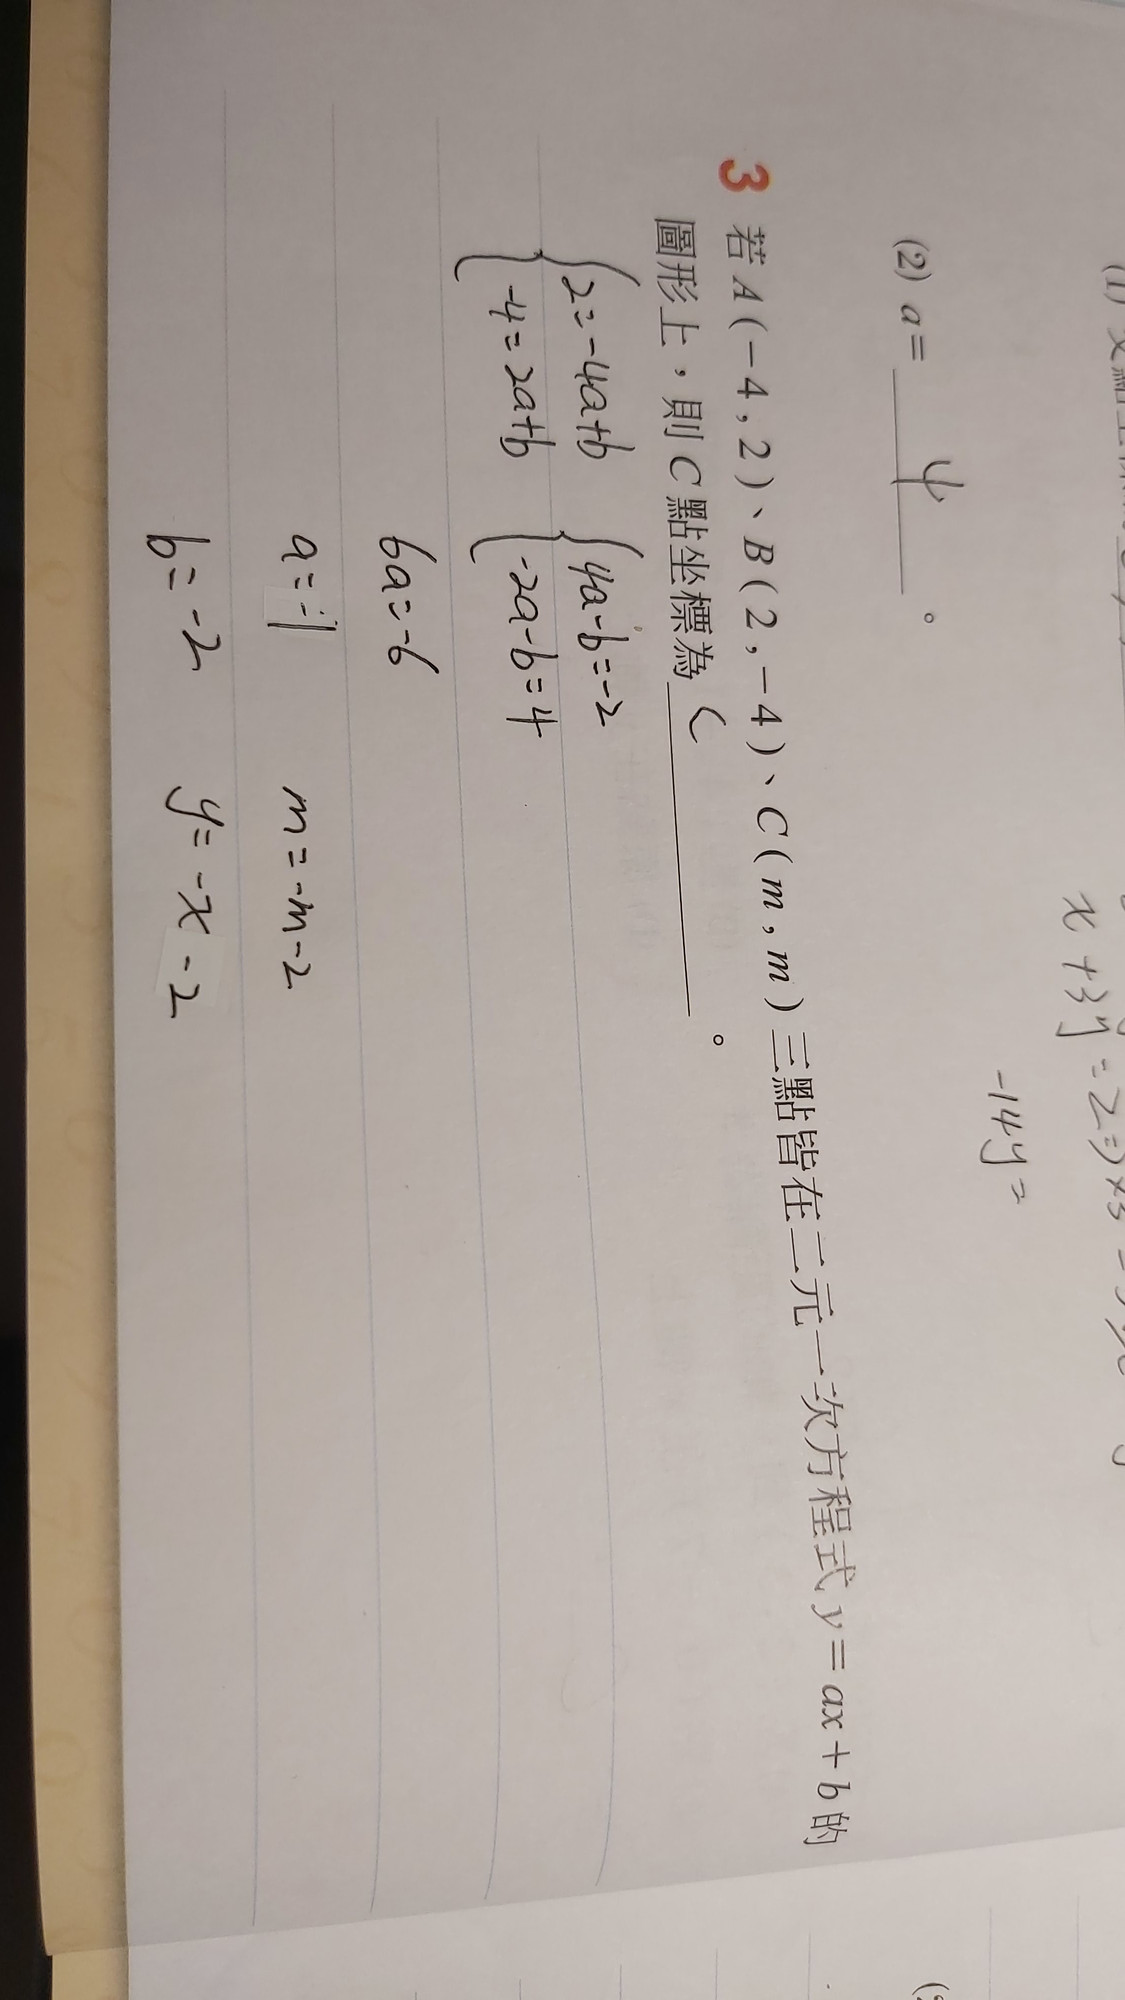 x+3y=2
-14y=
(2) a= 4 。
3 若A(-4,2)、B(2,-4)、C(m,m)三點皆在二元一次方程式y=ax+b的
圖形上,則C點坐標為 ( 。
{2=-4a+b {4a-b=-2
{-4=2a+b {-2a-b=4
6a=-6
a=-1 m=-m-2
b=-2 y=-x-2